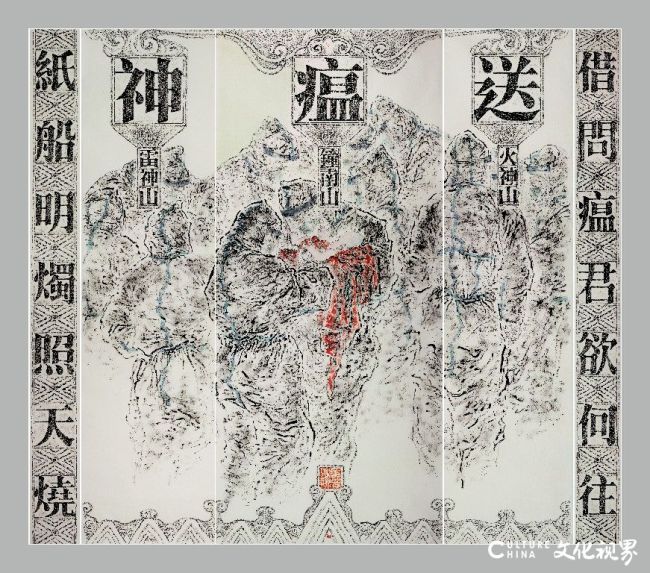 借問瘟君欲何往
送瘟神
火神山
鐘南山
雷神山
紙船明燭照天燒
CULTURE
CHINA 文化视界